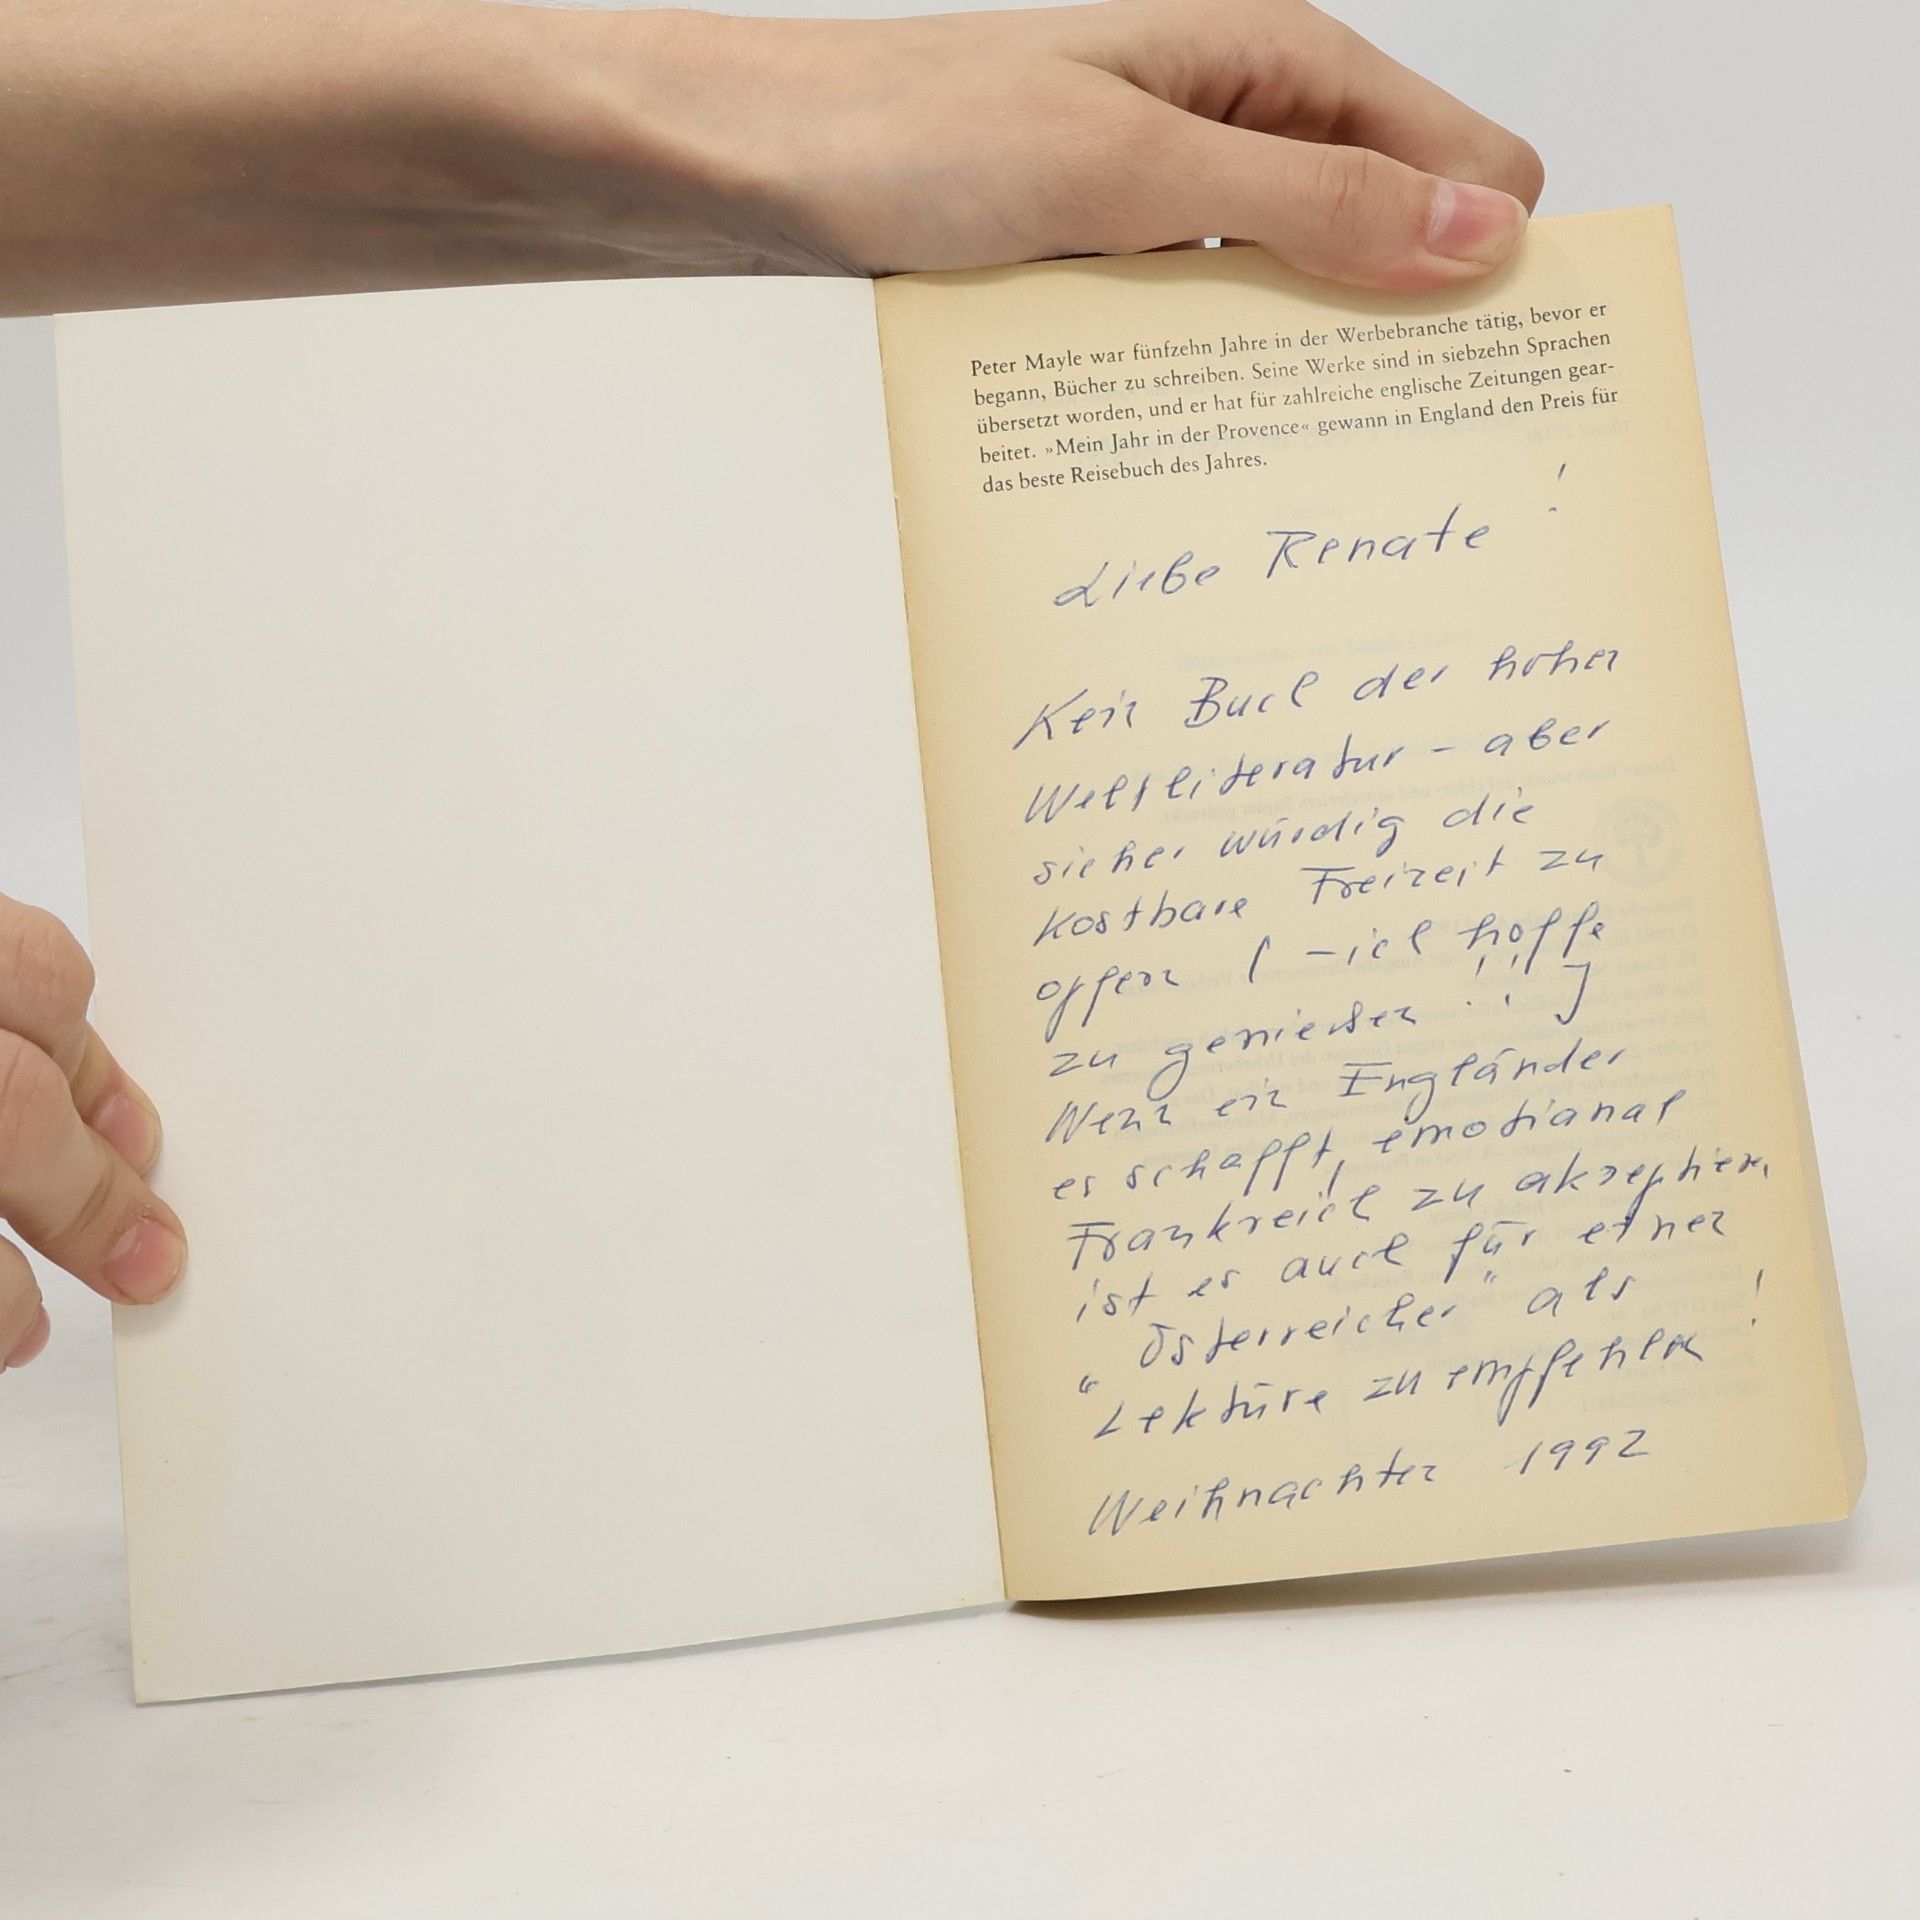 Peter Mayle war fünfzehn Jahre in der Werbebranche tätig, bevor er
begann, Bücher zu schreiben. Seine Werke sind in siebzehn Sprachen
übersetzt worden, und er hat für zahlreiche englische Zeitungen gear-
beitet. »Mein Jahr in der Provence« gewann in England den Preis für
das beste Reisebuch des Jahres.
Liebe Renate !
Kein Buch der hohen
Weltliteratur – aber
sicher würdig die
kostbare Freizeit zu
opfern ( – ich hoffe
zu genießen !! )
Wenn ein Engländer
es schafft, emotional
Frankreich zu akzeptieren,
ist es auch für einen
"Österreicher" als
Lektüre zu empfehlen !
Weihnachten 1992